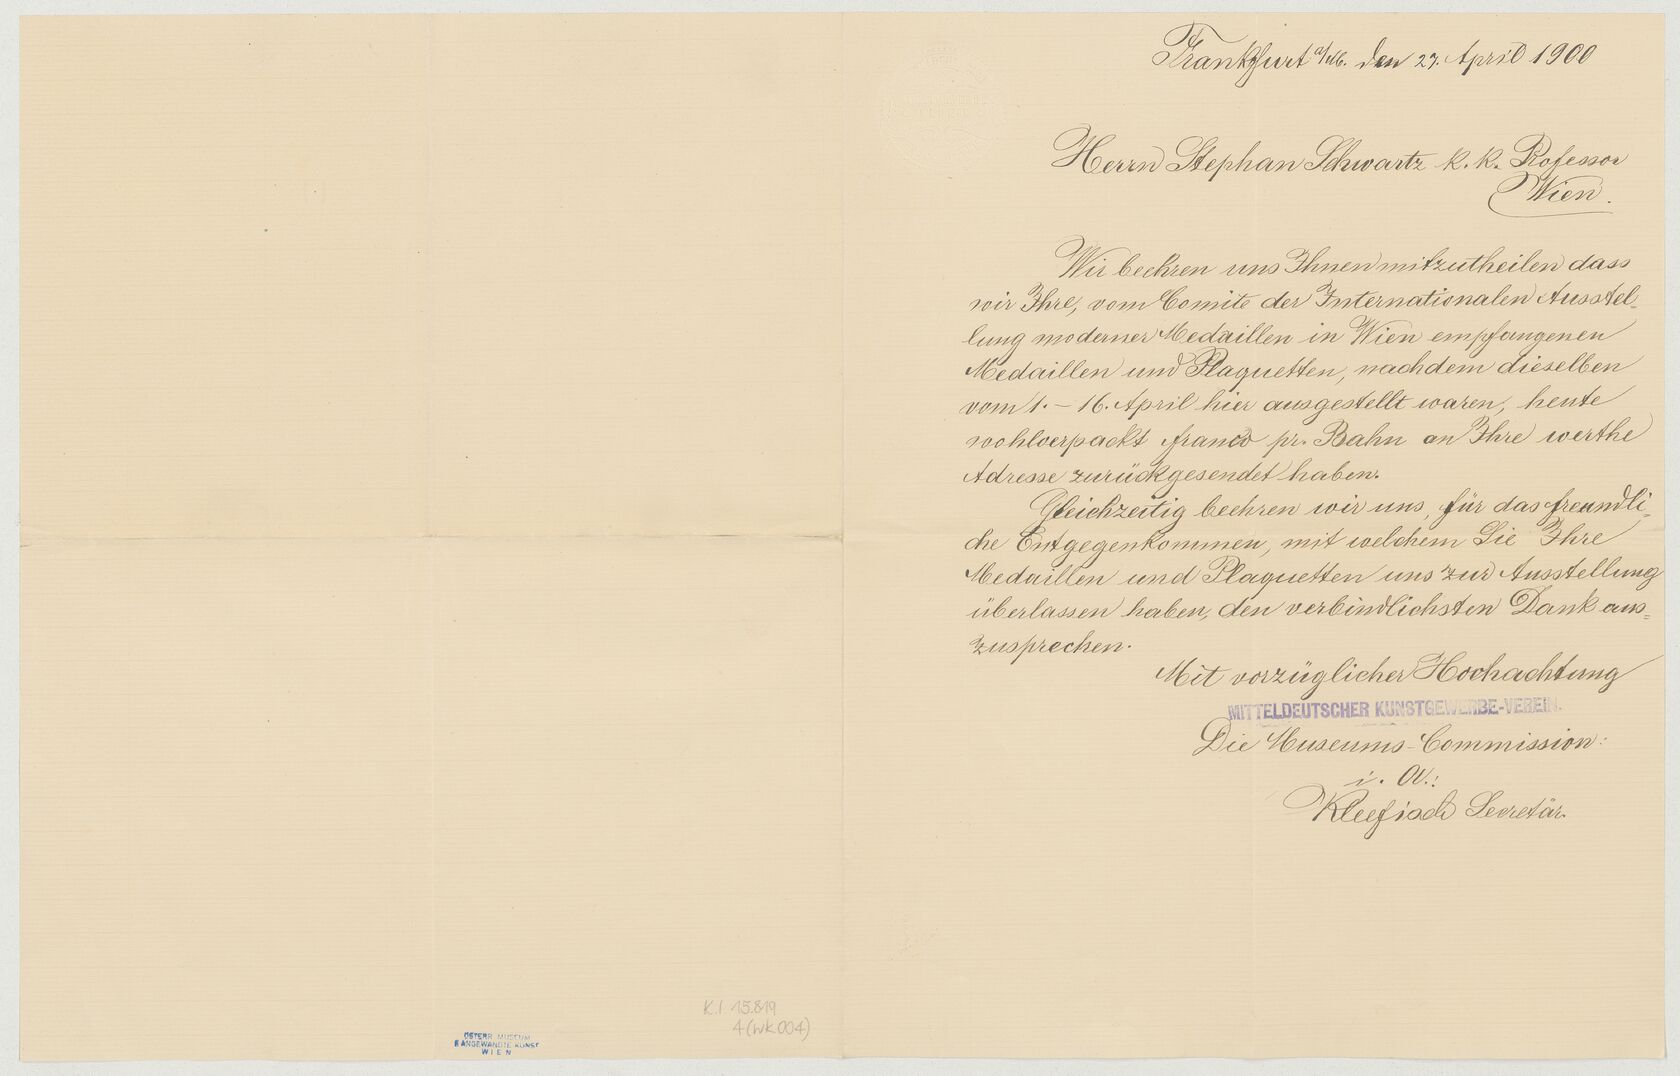 Frankfurt a/M. den 27. April 1900
Herrn Stephan Schwartz k. k. Professor
Wien.
Wir beehren uns Ihnen mitzutheilen dass
wir Ihre, vom Comite der Internationalen Ausstel-
lung moderner Medaillen in Wien empfangenen
Medaillen und Plaquetten, nachdem dieselben
vom 1. – 16. April hier ausgestellt waren, heute
wohlverpackt franco pr. Bahn an Ihre werthe
Adresse zurückgesendet haben.
Gleichzeitig beehren wir uns, für das freundli-
che Entgegenkommen, mit welchem Sie Ihre
Medaillen und Plaquetten uns zur Ausstellung
überlassen haben, den verbindlichsten Dank aus-
zusprechen.
Mit vorzüglicher Hochachtung
MITTELDEUTSCHER KUNSTGEWERBE-VEREIN.
Die Museums-Commission:
i. A.:
Kleefisch Secretär.
K.I 15.819
4 (wk 004)
ÖSTERR MUSEUM
F. ANGEWANDTE KUNST
WIEN